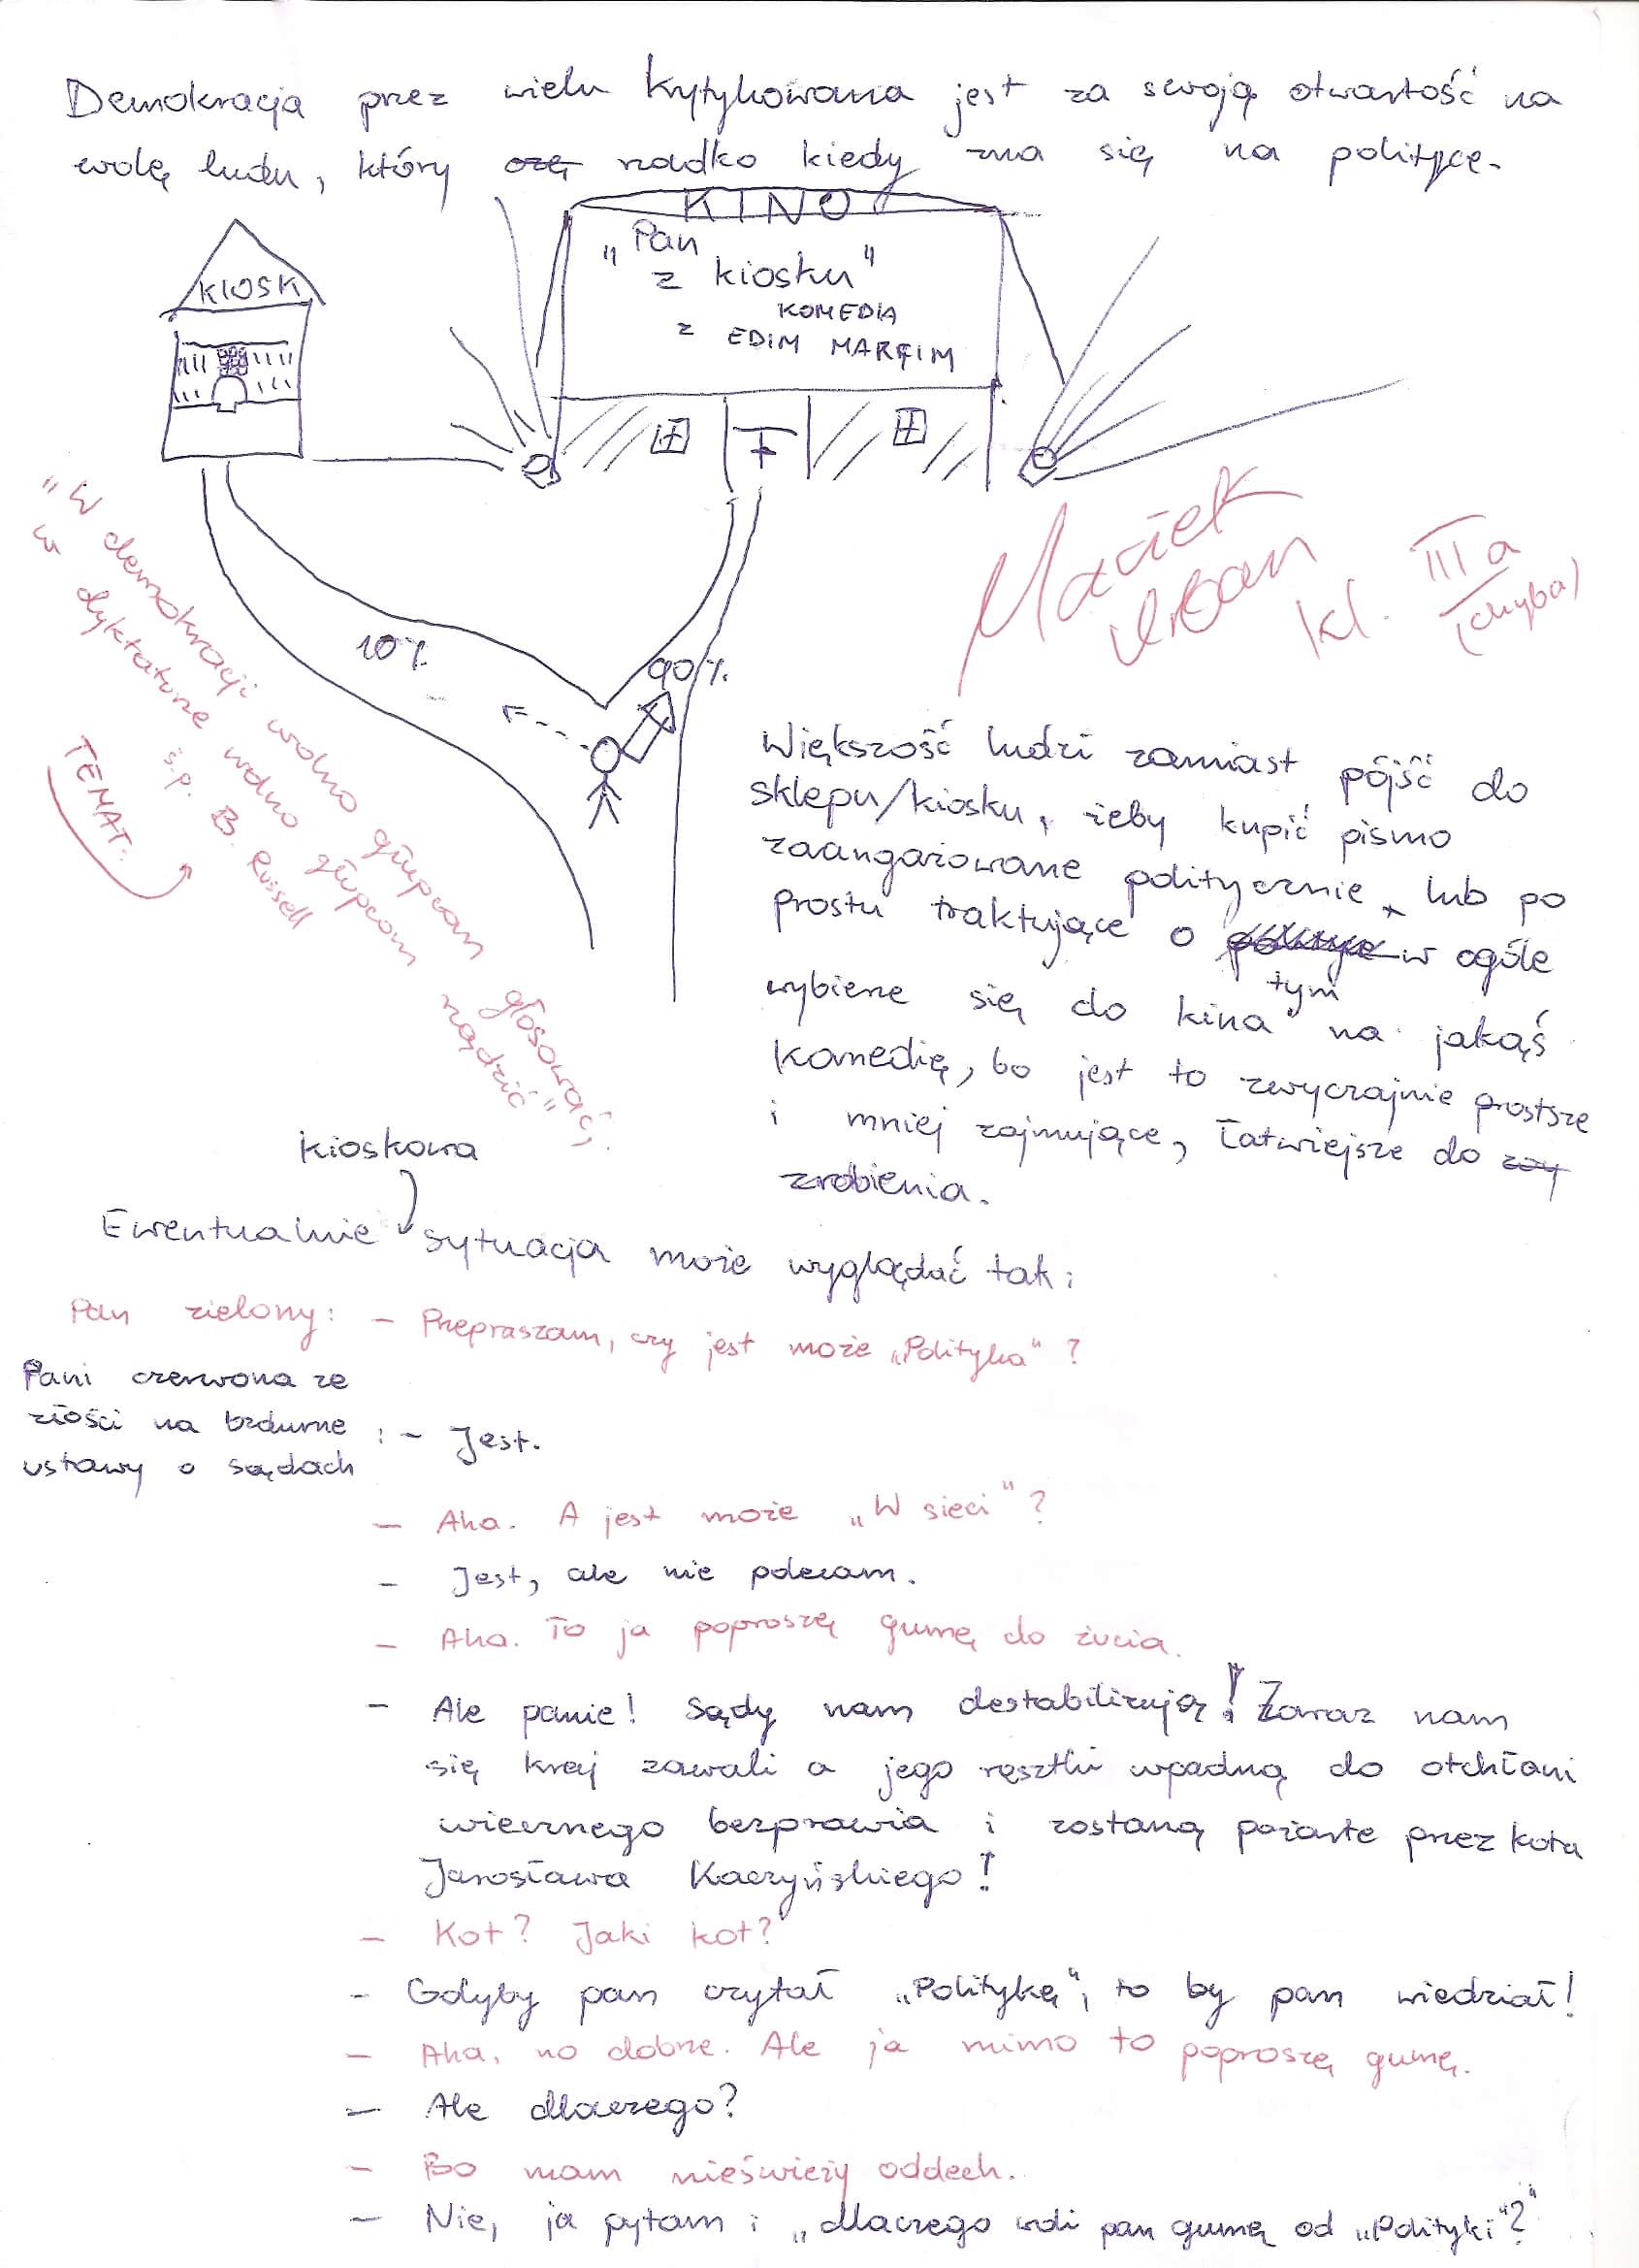 Demokracja przez wielu krytykowana jest za swoją otwartość na
wolę ludu, który rzadko kiedy zna się na polityce.
KINO
KIOSK
"Pan
z kiosku"
KOMEDIA
z EDIM MARFIM
Maciek
Urban
kl. III a
(chyba)
"W demokracji wolno głupcom głosować,
w dyktaturze wolno głupcom rządzić"
ś.p. B. Russell
TEMAT:
10%
90%
Większość ludzi zamiast pójść do
sklepu/kiosku, żeby kupić pismo
zaangażowane politycznie, lub po
prostu traktujące o tym w ogóle
wybierze się do kina na jakąś
komedię, bo jest to zwyczajnie prostsze
i mniej zajmujące, łatwiejsze do
zrobienia.
kioskowa
Ewentualnie sytuacja może wyglądać tak:
Pan zielony: - Przepraszam, czy jest może „Polityka"?
Pani czerwona ze
złości na bzdurne : - Jest.
ustawy o sądach
- Aha. A jest może „W sieci"?
- Jest, ale nie polecam.
- Aha. To ja poproszę gumę do żucia.
- Ale panie! Sądy nam destabilizują! Zaraz nam
się kraj zawali a jego resztki wpadną do otchłani
wiecznego bezprawia i zostaną pożarte przez kota
Jarosława Kaczyńskiego!
- Kot? Jaki kot?
- Gdyby pan czytał „Politykę", to by pan wiedział!
- Aha, no dobrze. Ale ja mimo to poproszę gumę.
- Ale dlaczego?
- Bo mam nieświeży oddech.
- Nie, ja pytam: „dlaczego woli pan gumę od „Polityki"?"